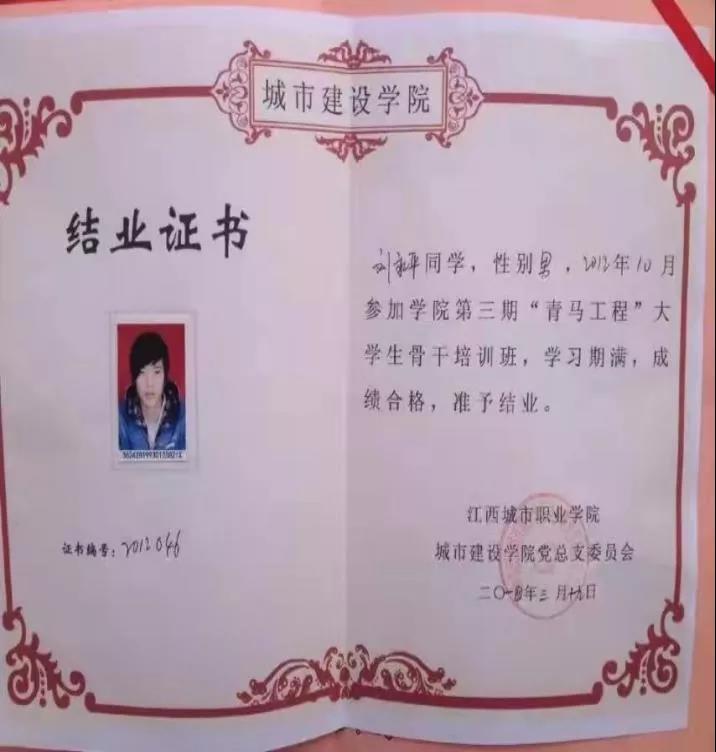 城市建设学院
结业证书
证书编号：2012046
刘和平同学，性别男，2012年10月
参加学院第三期“青马工程”大
学生骨干培训班，学习期满，成
绩合格，准予结业。
江西城市职业学院
城市建设学院党总支委员会
二〇一四年三月十九日